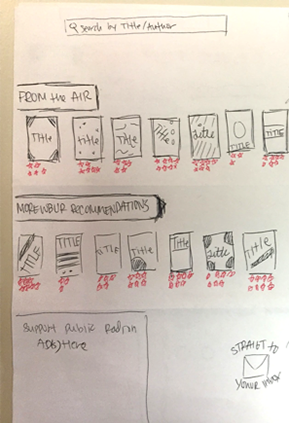 search by Title/Author
FROM the AIR
Title
Title
Title
Title
Title
TITLE
TITLE
MORE WBUR RECOMMENDATIONS
TITLE
TITLE
TITLE
Title
Title
Title
Title
Support Public Radio
Ads Here
STRAIGHT to
your inbox